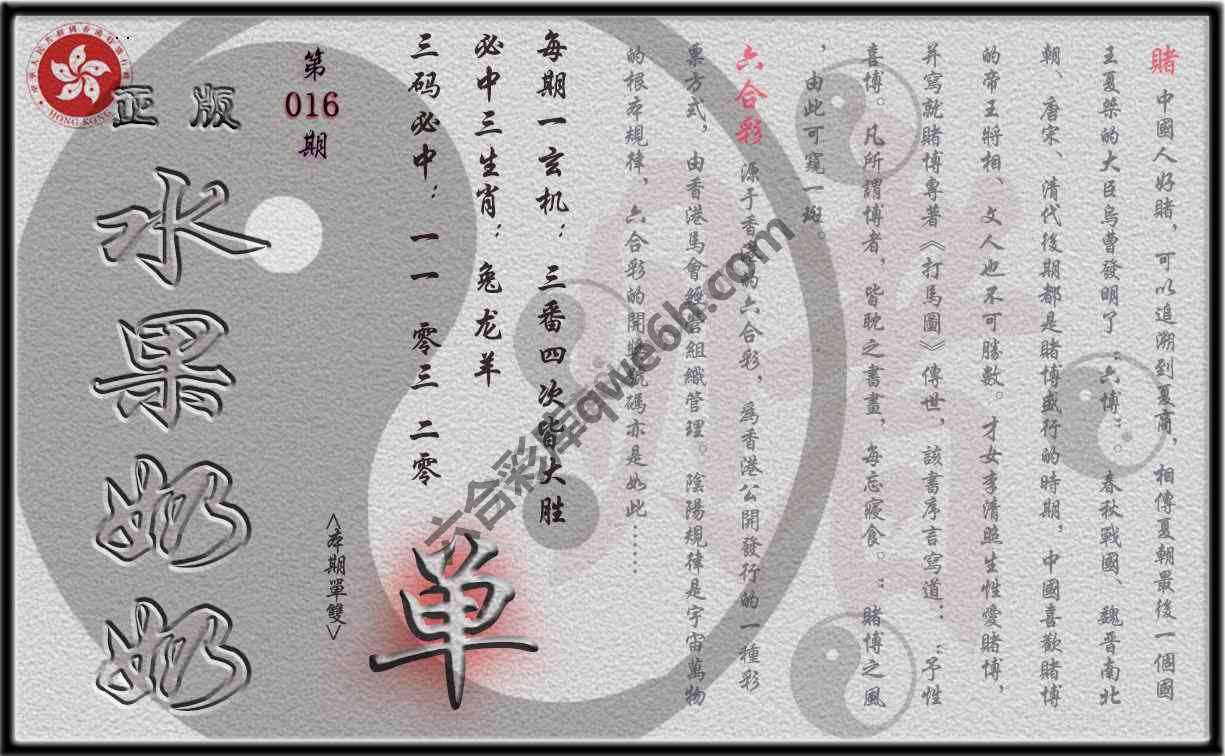 賭 中國人好賭，可以追溯到夏商，相傳夏朝最後一個國
王夏桀的大臣烏曹發明了：六博：。春秋戰國、魏晋南北
朝、唐宋、清代後期都是賭博盛行的時期，中國喜歡賭博
的帝王將相、文人也不可勝數。才女李清照生性愛賭博，
并寫就賭博專著《打馬圖》傳世，該書序言寫道：：予性
喜博。凡所謂博者，皆耽之書畫，每忘寢食。：賭博之風
，由此可窺一斑。
六合彩 源于香港的六合彩，為香港公開發行的一種彩
票方式，由香港馬會經營組織管理。陰陽規律是宇宙萬物
的根本規律、六合彩的開獎號碼亦是如此……
每期一玄机：三番四次皆大胜
必中三生肖：兔龙羊
三码必中：一一 零三 二零
單
<本期單雙>
第
016
期
正版
水果奶奶
HONG KONG
六合彩库qwe6h.com